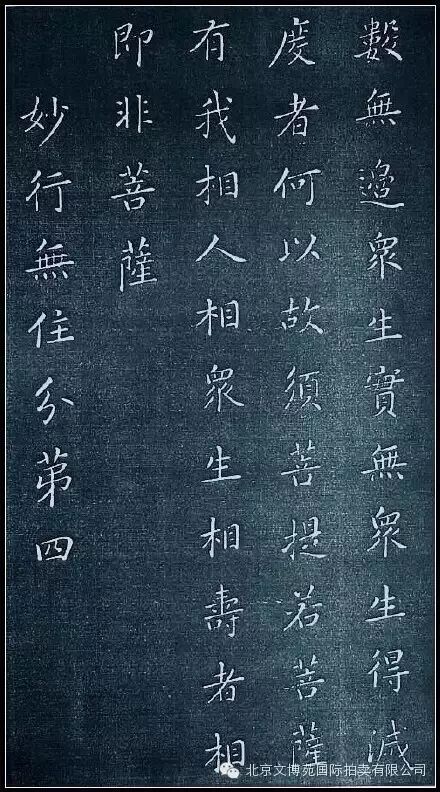 數無邊眾生實無眾生得滅
度者何以故須菩提若菩薩
有我相人相眾生相壽者相
即非菩薩
妙行無住分第四
北京文博苑国际拍卖有限公司